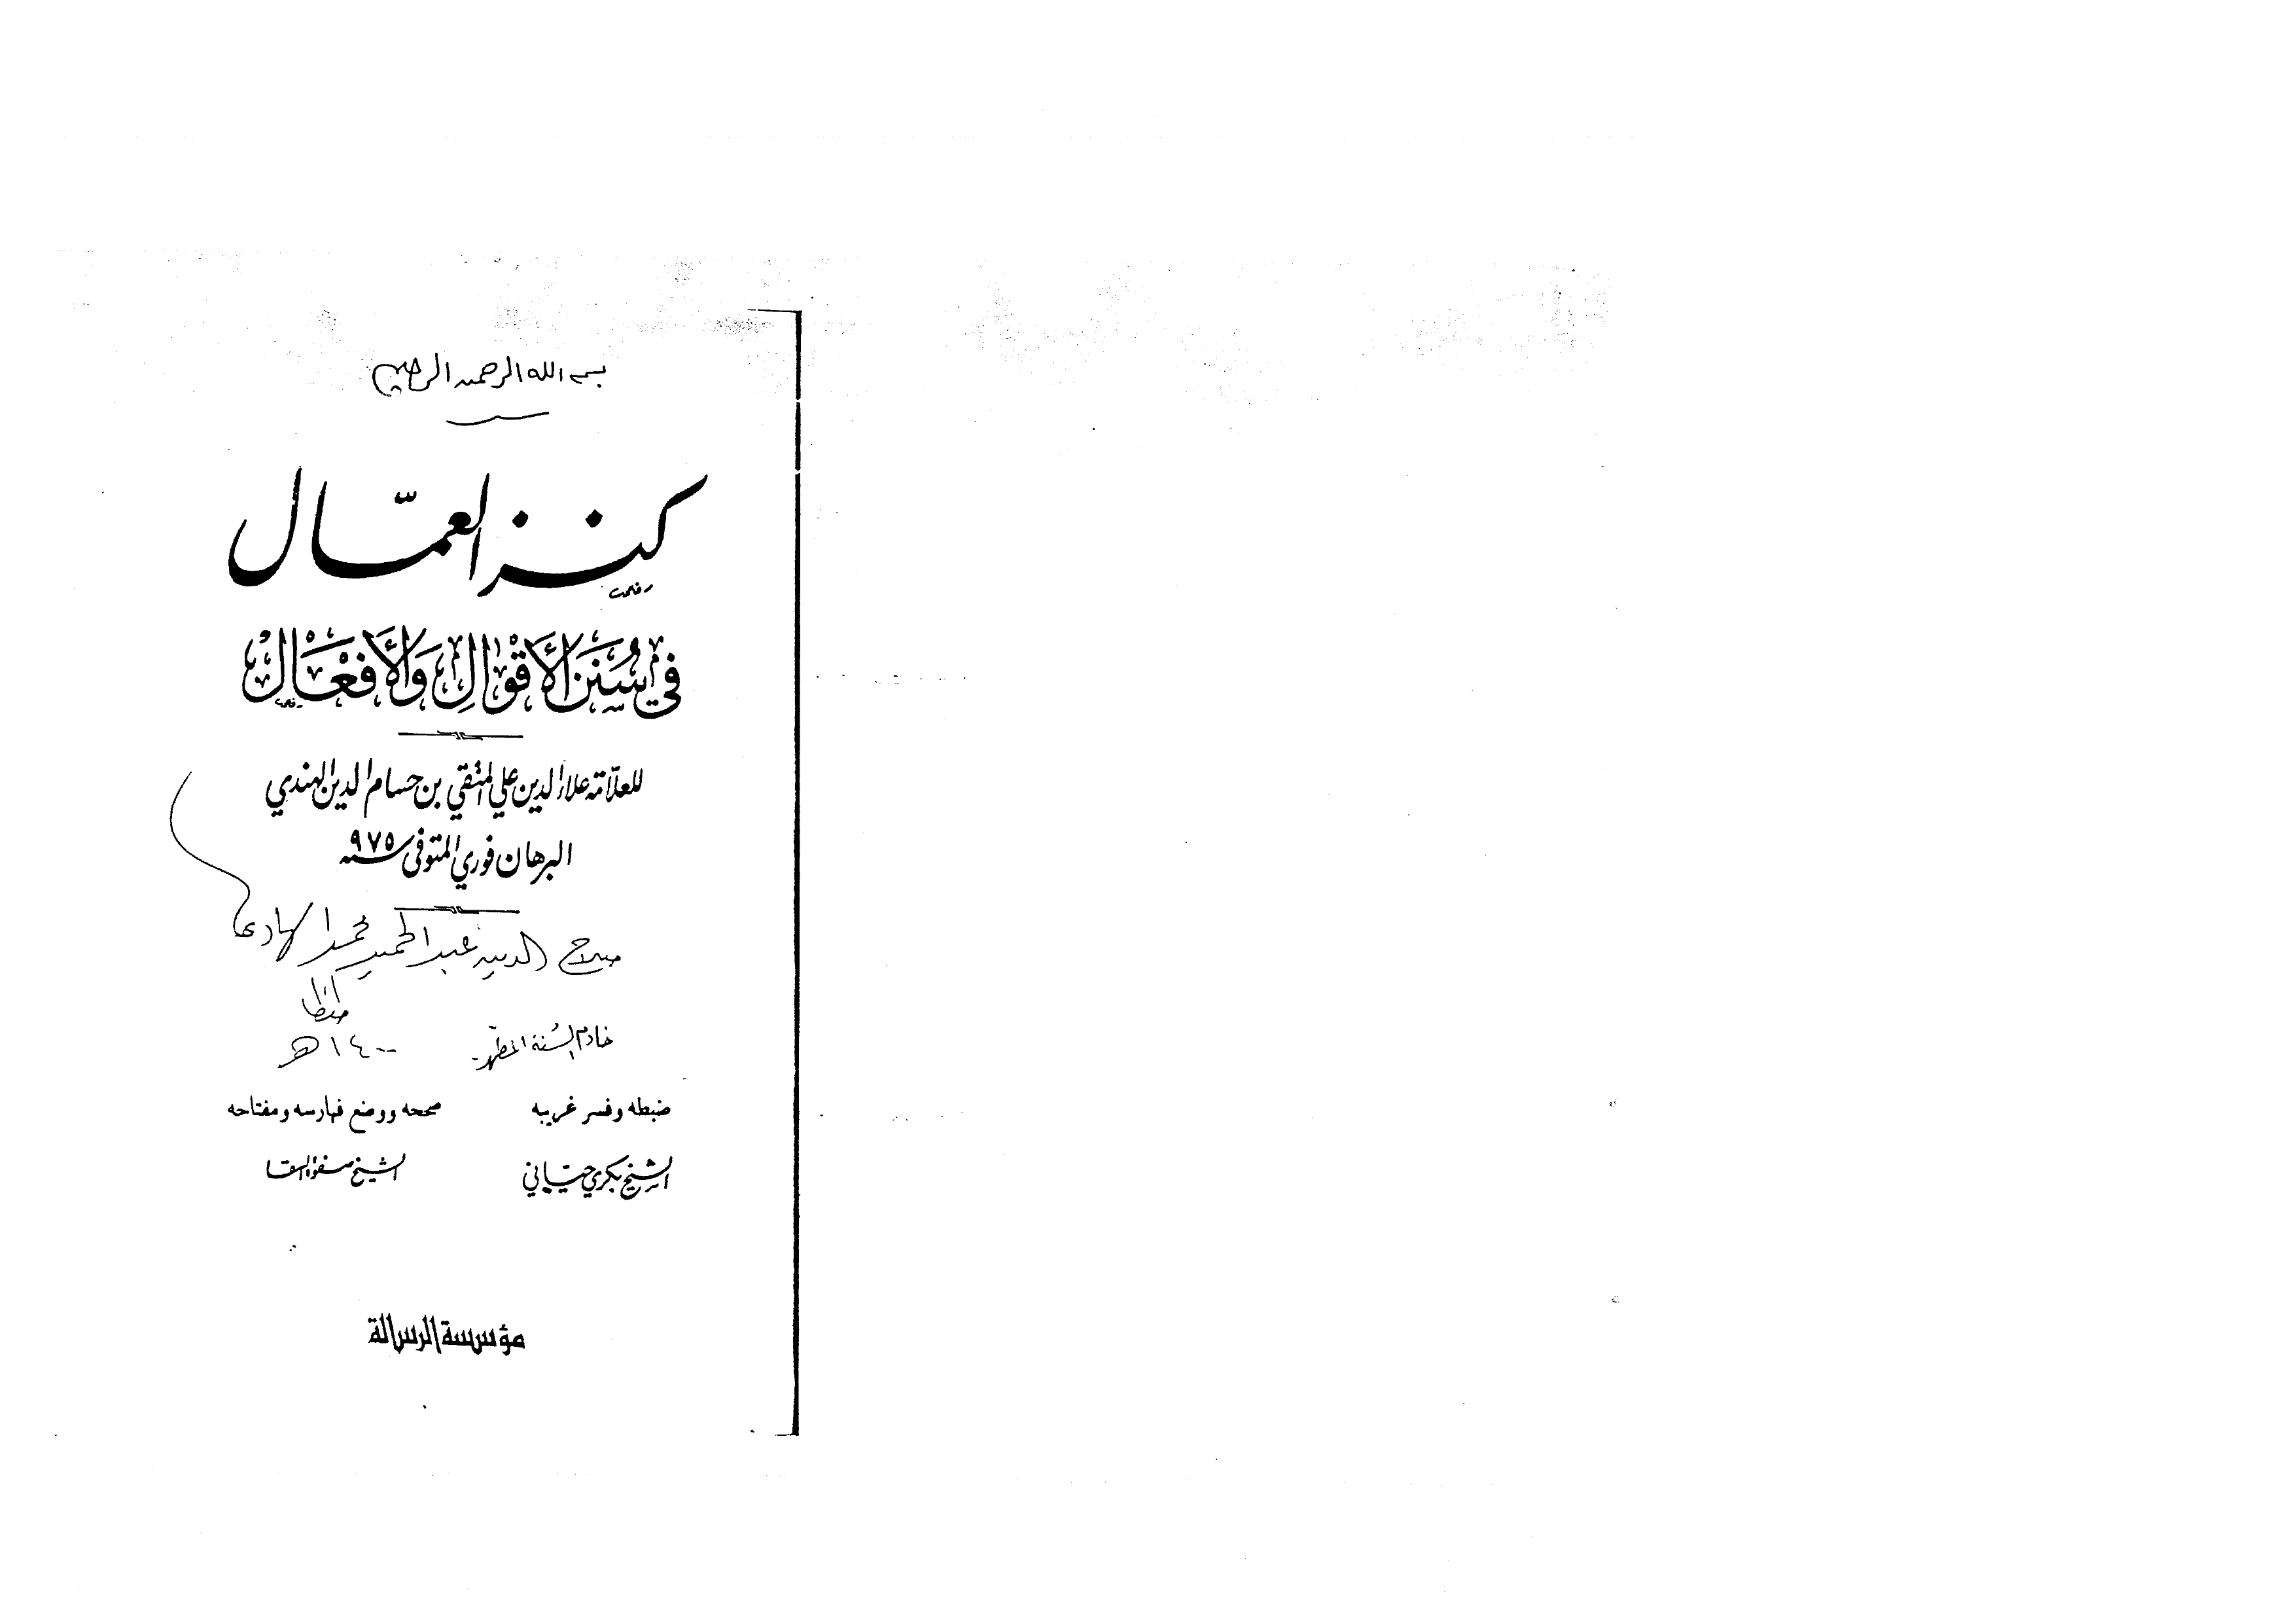 بسم الله الرحمن الرحيم
كنز العمّال
في سُنَنِ الأَقْوَالِ وَالأَفْعَالْ
للعلّامة علاء الدين علي المتقي بن حسام الدين الهندي
البرهان فوري المتوفى سنة ٩٧٥
صلاح الدين عبد الحميد محمد الهادي
طنطا
خادم السُنة المطهّرة ١٤٠٠هـ
ضبطه وفسر غريبه صححه ووضع فهارسه ومفتاحه
الشيخ بكري حيّاني الشيخ صفوة السقا
مؤسسة الرسالة